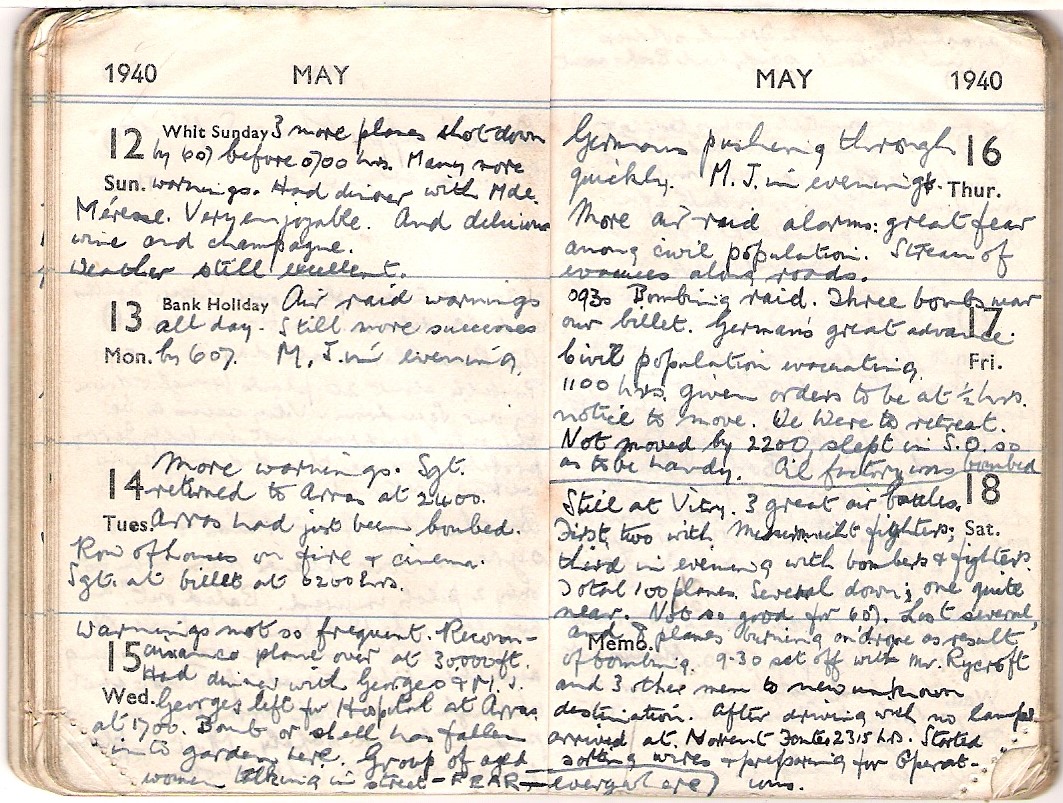 1940 MAY
12 Whit Sunday 3 more planes shot down
by 607 before 0700 hrs. Many more
Sun. warnings. Had dinner with Mde.
Mérese. Very enjoyable. And delicious
wine and champagne.
Weather still excellent.
13 Bank Holiday Air raid warnings
all day. Still more successes
Mon. by 607. M. J. in evening.
More warnings. Sgt.
14 returned to Arras at 2400.
Tues. Arras had just been bombed.
Row of houses on fire + cinema.
Sgt. at billet at 0200 hrs.
Warnings not so frequent. Reconn-
15 aisance plane over at 30,000 ft.
Had dinner with Georges + M. J.
Wed. Georges left for Hospital at Arras
at 1700. Bomb or shell has fallen
into garden here. Group of aged
women talking in street - FEAR - everywhere
MAY 1940
Germans pushing through 16
quickly. M. J. in evening. Thur.
More air raid alarms: great fear
among civil population. Stream of
evacuees along roads.
0930 Bombing raid. Three bombs near
our billet. German's great advance. 17
Civil population evacuating. Fri.
1100 hrs. given orders to be at ½ hrs.
notice to move. We were to retreat.
Not moved by 2200, slept in S.O. so
as to be handy. Oil factory was bombed
18
Still at Vitry. 3 great air battles.
First two with Messerschmitt fighters; Sat.
third in evening with bombers & fighters.
Total 100 planes. Several down; one quite
near. Not so good for 607. Lost several,
and 8 planes burning on drome as result
Memo.
of bombing. 9.30 set off with Mr. Rycroft
and 3 other men to new unknown
destination. After driving with no lamps
arrived at Norrent-Fontes 2315 hrs. Started
sorting wires + preparing for Operat-
ions.